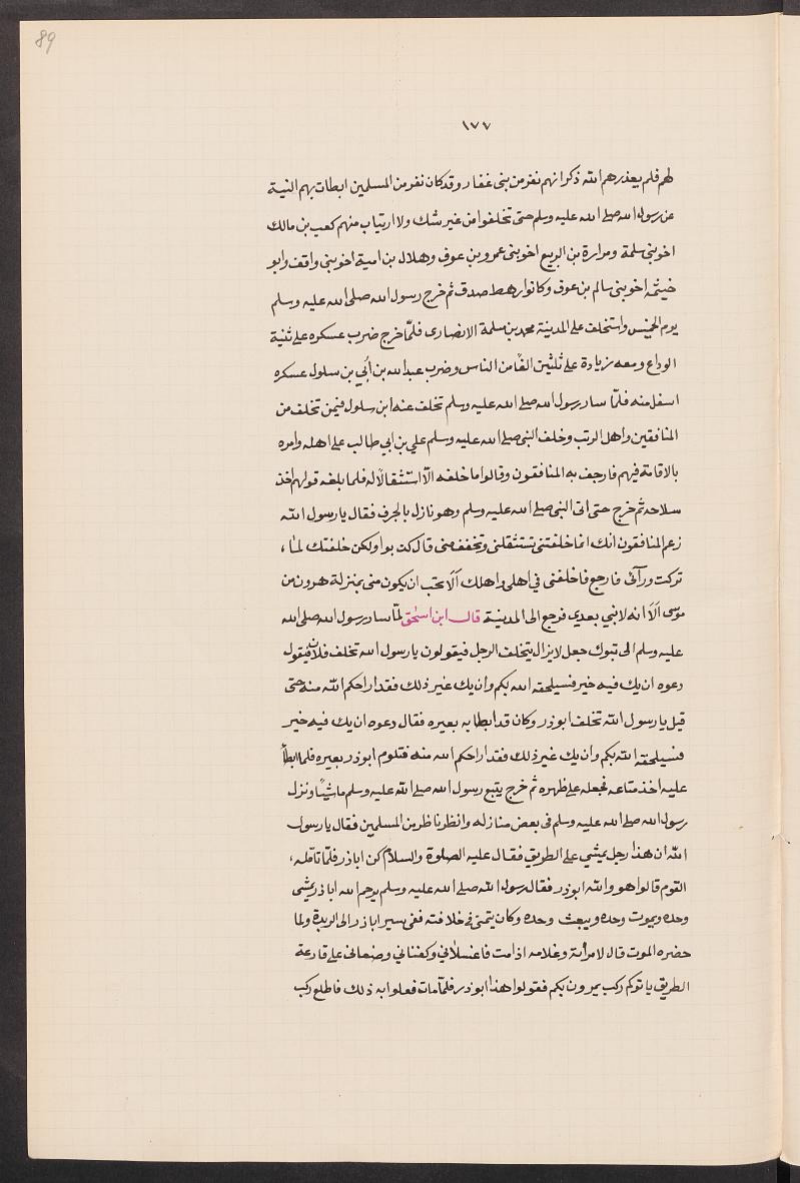 89
١٧٧
لهم فلم يعذرهم الله ذكر انهم نفر من بنى غفار وقد كان نفر من المسلمين ابطات بهم النية
عن رسول الله صلى الله عليه وسلم حتى تخلفوا من غير شك ولا ارتياب منهم كعب بن مالك
اخو بنى سلمة ومرارة بن الربيع اخو بنى عمرو بن عوف وهلال بن امية اخو بنى واقف وابو
خيثمه اخو بنى سالم بن عوف وكانوا رهط صدق ثم خرج رسول الله صلى الله عليه وسلم
يوم الخميس واستخلف على المدينة محمد بن مسلمة الانصارى فلمّا خرج ضرب عسكره على ثنية
الوداع ومعه زيادة على ثلثين الفًا من الناس وضرب عبد الله بن أُبي بن سلول عسكره
اسفل منه فلمّا سار رسول الله صلى الله عليه وسلم تخلف عنه ابن سلول فيمن تخلف من
المنافقين واهل الرتب وخلف النبى صلى الله عليه وسلم علي بن ابي طالب على اهله وامره
بالاقامة فيهم فارجف به المنافقون وقالوا ما خلفه الّا استثقالًا له فلما بلغه قولهم اخذ
سلاحه ثم خرج حتى اتى النبى صلى الله عليه وسلم وهو نازل بالجرف فقال يا رسول الله
زعم المنافقون انك انما خلفتنى تستثقلنى وتخفف منى قال كذبوا ولكن خلفتك لما،
تركت ورآئى فارجع فاخلفنى في اهلى واهلك الّا تحب ان يكون منى بمنزلة هرون من
موسى الّا انه لا نبي بعدى فرجع الى المدينة قال ابن اسحٰق لمّا سار رسول الله صلى الله
عليه وسلم الى تبوك جعل لا يزال يتخلف الرجل فيقولون يا رسول الله تخلف فلان فيقول
دعوه ان يك فيه خير فسيلحقه الله بكم وان يك غير ذلك فقد اراحكم الله منه حتى
قيل يا رسول الله تخلف ابو ذر وكان قد ابطا به بعيره فقال دعوه ان يك فيه خير
فسيلحقه الله بكم وان يك غير ذلك فقد اراحكم الله منه فتلوم ابو ذر بعيره فلما ابطأ
عليه اخذ متاعه فجعله على ظهره ثم خرج يتبع رسول الله صلى الله عليه وسلم ماشيًا ونزل
رسول الله صلى الله عليه وسلم فى بعض منازله وانظر ناظر من المسلمين فقال يا رسول
الله ان هذا رجل يمشي على الطريق فقال عليه الصلوة والسلام كن اباذر فلمّا تامله،
القوم قالوا هو والله ابو ذر فقال رسول الله صلى الله عليه وسلم يرحم الله اباذر يمشى
وحده ويموت وحده ويبعث وحده وكان يتمنى فى خلافته ففى سير اباذر الى الربدة ولما
حضره الموت قال لامرأته وغلامه اذا مت فاغسلانى وكفنانى وضعانى على قارعة
الطريق ياتوكم ركب يمرون بكم فقولوا هذا ابو ذر فلمّا مات فعلوا به ذلك فاطلع ركب